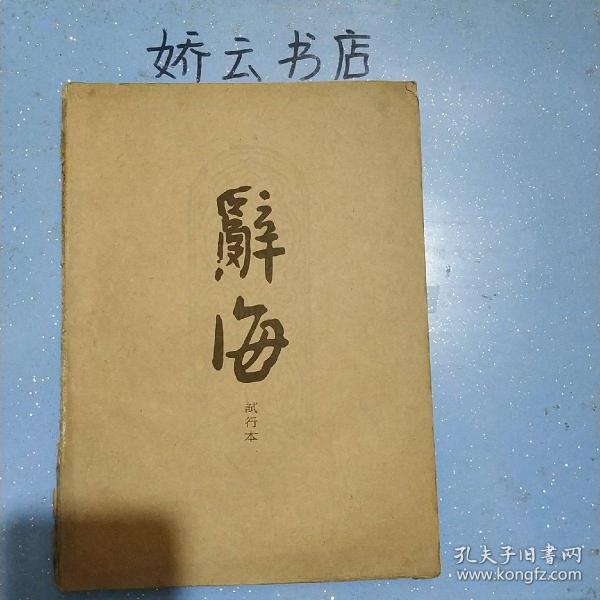 娇云书店
辭海
試行本
孔夫子旧书网
www.kongfz.com